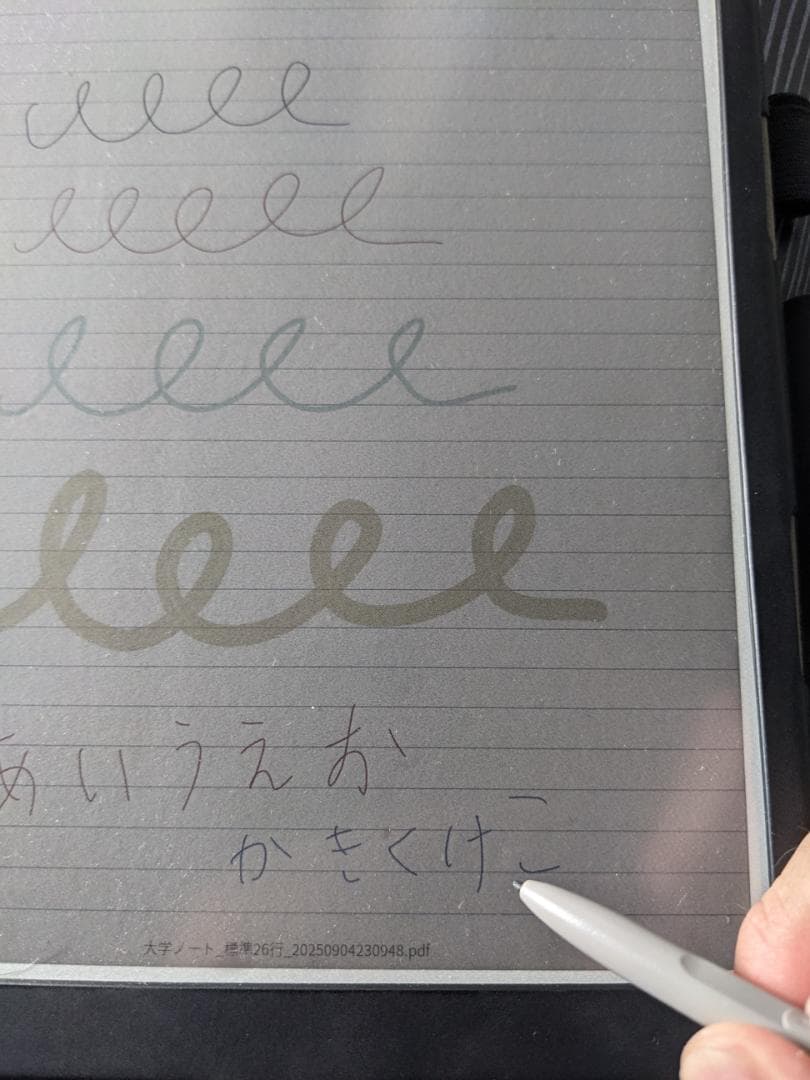 あいうえお
かきくけこ
大学ノート_標準26行_20250904230948.pdf